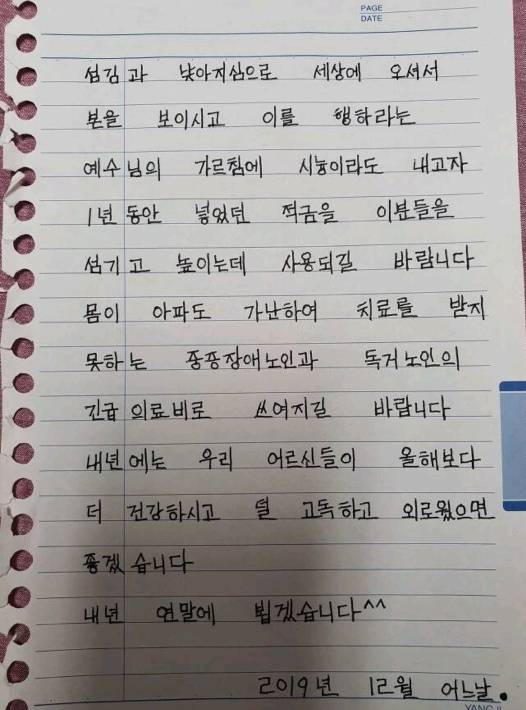 PAGE
DATE
섬김과 낮아지심으로 세상에 오셔서
본을 보이시고 이를 행하라는
예수님의 가르침에 시늉이라도 내고자
1년 동안 넣었던 적금을 이분들을
섬기고 높이는데 사용되길 바랍니다
몸이 아파도 가난하여 치료를 받지
못하는 중증장애노인과 독거노인의
긴급 의료비로 쓰여지길 바랍니다
내년에는 우리 어르신들이 올해보다
더 건강하시고 덜 고독하고 외로웠으면
좋겠습니다
내년 연말에 뵙겠습니다^^
2019년 12월 어느날.